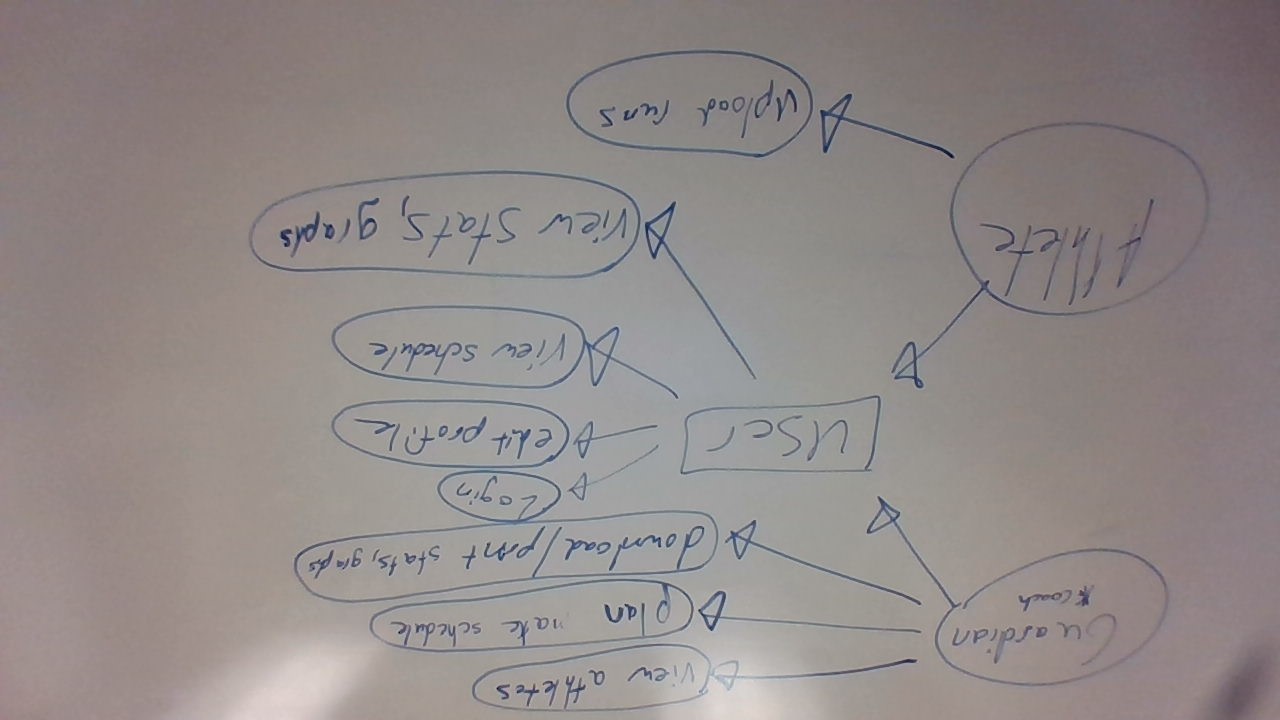 Guardian
*coach
view athletes
plan schedule
download/print stats, graphs
User
Login
edit profile
view schedule
Athlete
view stats, graphs
upload runs